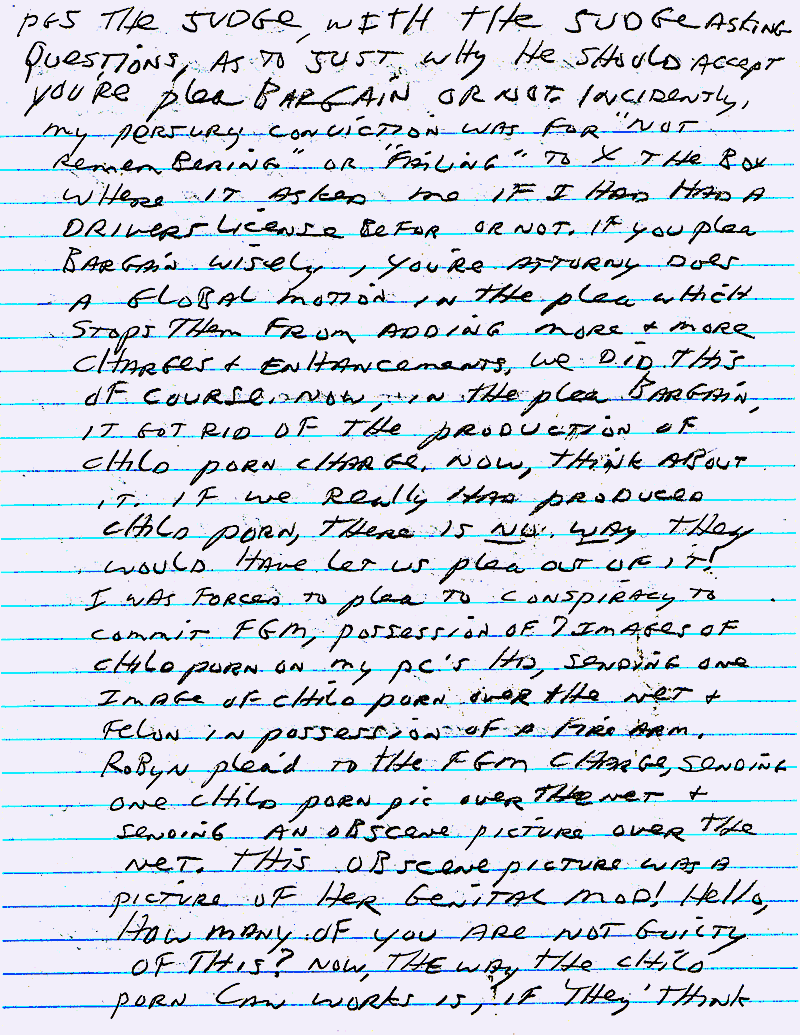 PG5 THE JUDGE, WITH THE JUDGE ASKING
QUESTIONS, AS TO JUST WHY HE SHOULD ACCEPT
YOU'RE plea BARGAIN OR NOT. INCIDENTLY,
my PERJURY CONVICTION WAS FOR "NOT
RememBERING" OR "FAILING" TO X THE BOX
WHERE IT ASKED me IF I HAD HAD A
DRIVERS LICENSE BEFOR OR NOT. IF YOU plea
BARGAIN WISELY, YOU'RE ATTORNY DOES
A GLOBAL MOTION IN THE plea WHICH
STOPS THEM FROM ADDING more + more
CHARGES + ENHANCEMENTS, WE DID THIS
OF COURSE. NOW, IN THE plea BARGAIN,
IT GOT RID OF THE PRODUCTION OF
CHILD PORN CHARGE. NOW, THINK ABOUT
IT. IF WE REALLY HAD PRODUCED
CHILD PORN, THERE IS NO WAY THEY
WOULD HAVE LET US plea OUT OF IT!
I WAS FORCED TO plea TO CONSPIRACY TO
COMMIT FGM, POSSESSION OF 7 IMAGES OF
CHILD PORN ON MY PC'S HD, SENDING ONE
IMAGE OF CHILD PORN OVER THE NET +
FELON IN POSSESSION OF A FIRE ARM.
ROBYN plea'd TO THE FGM CHARGE, SENDING
ONE CHILD PORN PIC OVER THE NET +
SENDING AN OBSCENE PICTURE OVER THE
NET. THIS OBSCENE PICTURE WAS A
PICTURE OF HER GENITAL MOD! Hello,
HOW MANY OF YOU ARE NOT GUILTY
OF THIS? NOW, THE WAY THE CHILD
PORN CAN WORKS IS, IF 'THEY' THINK